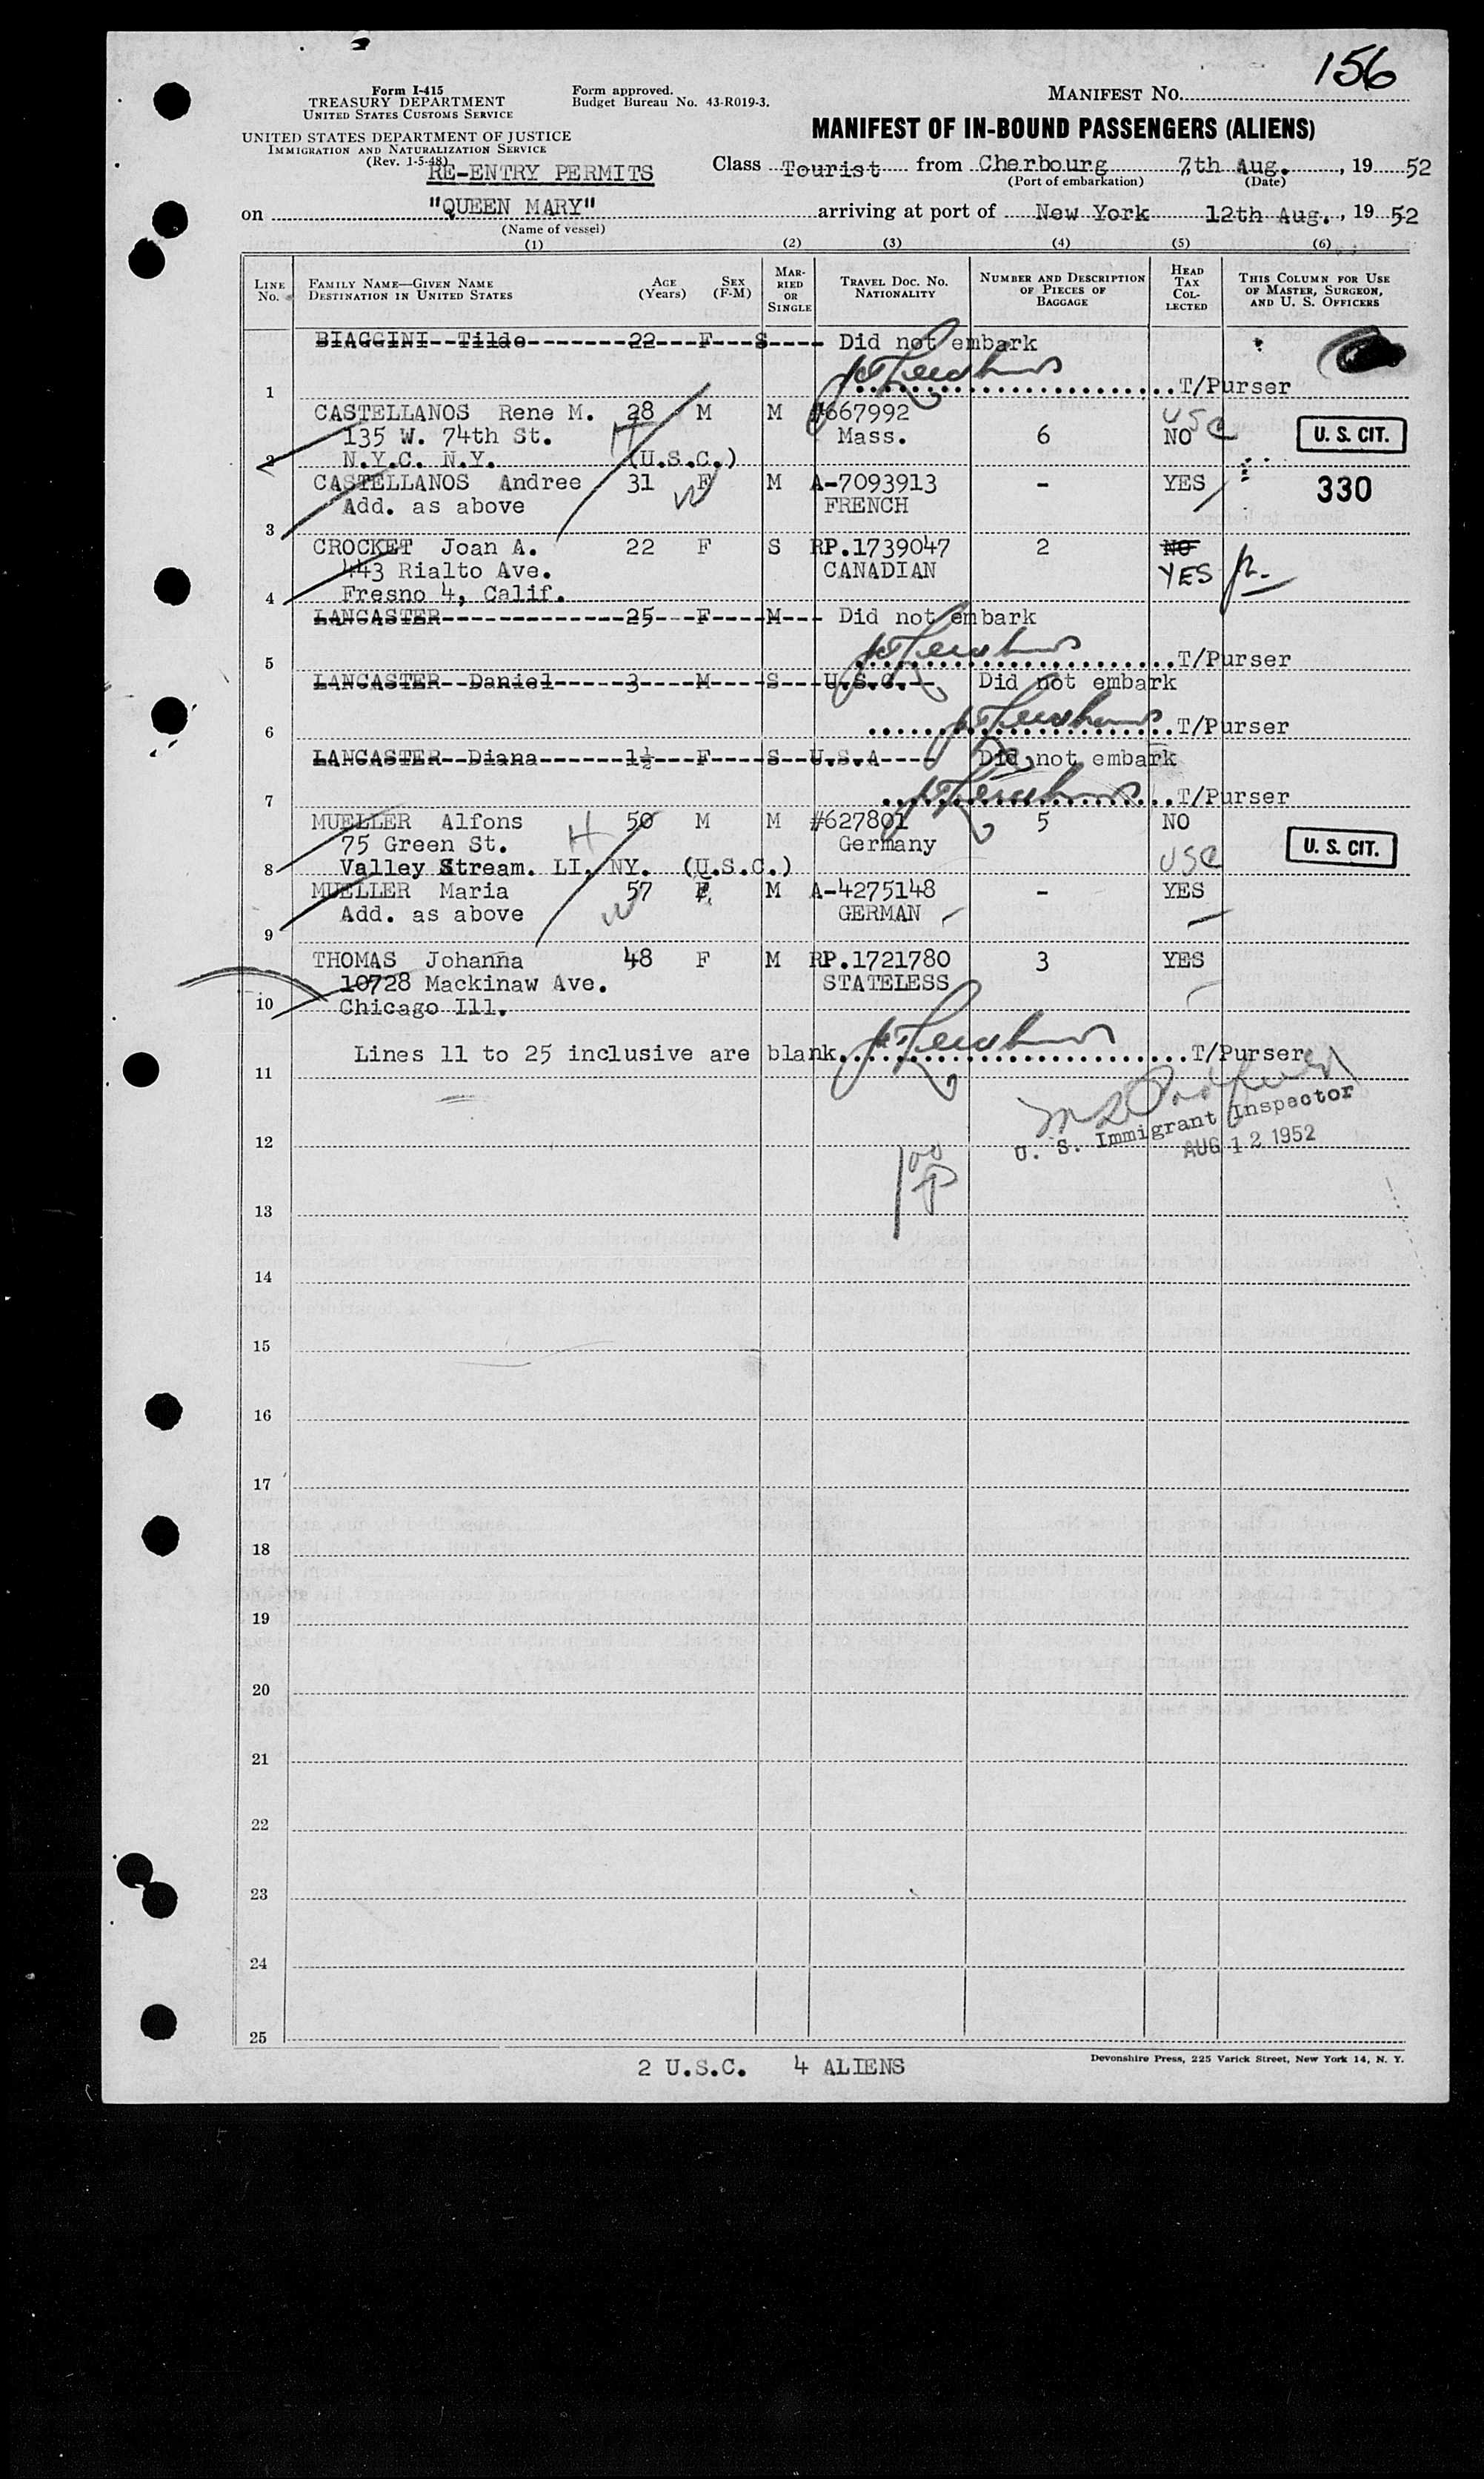 156
Form I-415
TREASURY DEPARTMENT
UNITED STATES CUSTOMS SERVICE
Form approved.
Budget Bureau No. 43-R019-3.
MANIFEST NO.
UNITED STATES DEPARTMENT OF JUSTICE
IMMIGRATION AND NATURALIZATION SERVICE
(Rev. 1-5-48)
MANIFEST OF IN-BOUND PASSENGERS (ALIENS)
RE-ENTRY PERMITS
Class Tourist from Cherbourg 7th Aug. , 19 52
(Port of embarkation) (Date)
on "QUEEN MARY" arriving at port of New York 12th Aug. , 19 52
(Name of vessel)
(1) (2) (3) (4) (5) (6)
LINE No. FAMILY NAME—GIVEN NAME DESTINATION IN UNITED STATES AGE (Years) SEX (F-M) MARRIED OR SINGLE TRAVEL DOC. NO. NATIONALITY NUMBER AND DESCRIPTION OF PIECES OF BAGGAGE HEAD TAX COLLECTED THIS COLUMN FOR USE OF MASTER, SURGEON, AND U. S. OFFICERS
BIAGGINI Tilde 22 F S Did not embark
1 T/Purser
CASTELLANOS Rene M. 28 M M #667992 USC
135 W. 74th St. H Mass. 6 NO U. S. CIT.
2 N.Y.C. N.Y. (U.S.C.)
CASTELLANOS Andree 31 F M A-7093913 - YES 330
Add. as above W FRENCH
3
CROCKET Joan A. 22 F S RP.1739047 2 NO
443 Rialto Ave. CANADIAN YES
4 Fresno 4, Calif.
LANCASTER 25 F M Did not embark
5 T/Purser
LANCASTER Daniel 3 M S U.S.C. Did not embark
6 T/Purser
LANCASTER Diana 1½ F S U.S.A Did not embark
7 T/Purser
MUELLER Alfons 50 M M #627801 5 NO
75 Green St. H Germany U. S. CIT.
8 Valley Stream. LI. NY. (U.S.C.) USC
MUELLER Maria 57 F M A-4275148 - YES
Add. as above W GERMAN
9
THOMAS Johanna 48 F M RP.1721780 3 YES
10728 Mackinaw Ave. STATELESS
10 Chicago Ill.
Lines 11 to 25 inclusive are blank. T/Purser
11
U. S. Immigrant Inspector
12 AUG 12 1952
13
14
15
16
17
18
19
20
21
22
23
24
25
2 U.S.C. 4 ALIENS
Devonshire Press, 225 Varick Street, New York 14, N. Y.